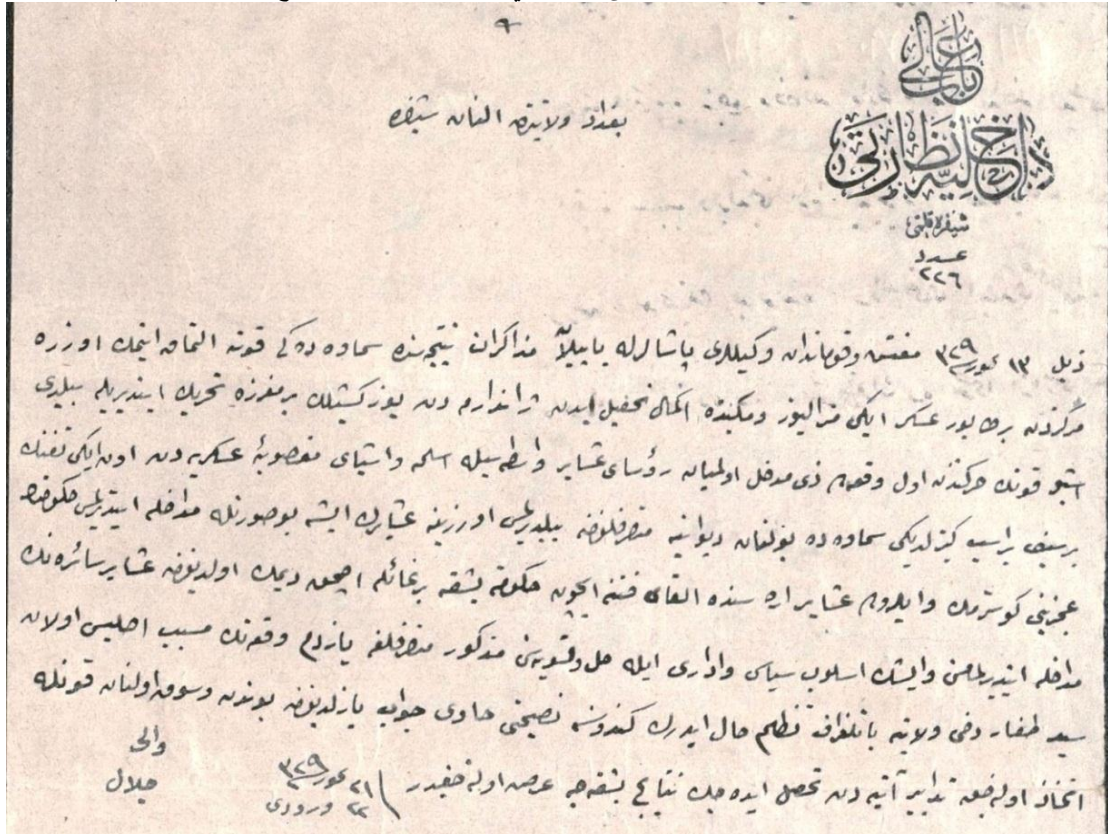 باب عالی
داخلیه نظارتی
شیفره قلمی
عدد
۲۲٦
بغداد ولایتندن النان شیفره
ذیل ۱۳ تموز ۳۲۹ مفتش وقوماندان وکیللری پاشالرله یاپیلان مذاکرات نتیجه‌سنده سماوه ده کی قوته التحاق ایتمك اوزره
مرکزدن بر طابور عسکر ایکی مترالیوز ومکتبده اکمال تحصیل ایدن ژاندارمه دن یوز کشیلك بر مفرزه تحریك ایتدیریله بیلدی
اشبو قوتك حرکتندن اول وقعه‌ده ذی مدخل اولمیان رؤسای عشایر واسطه سیله اسلحه واشیای مغصوبهٔ عسکریه دن اون ایکی تفنك
کتیرلدیکی سماوه ده بولنان دیوانیه متصرفلغندن بیلدیرلمسی اوزرینه عشایرك ایشه بو صورتله مداخله ایتدیرلمسی حکومتك
عجزینی کوسترمك وایلروده عشایر اره سنده القای فتنه ایچون حکومته بشقه بر غائله اچمق دیمك اولدیغندن عشایر سائره نك
مداخله ایتدیرلمامسی وایشك اسلوب سیاسی واداری ایله حل وتسویه‌سی مذکور متصرفلغه یازدم وقعه‌نك مسبب اصلیسی اولان
سید طفار دخی ولایته باتلغراف تظلم حال ایدرك کندوسنه نصیحتی حاوی جواب یازلدیغندن بوندن وسوق اولنان قوتله
اتخاذ اوله‌جق تدابیر آتیه دن تحصل ایده جك نتایج بشقه‌جه عرض اوله‌جقدر ۲۱ تموز ۳۲۹
۲۲ ورودی
والی
جلال